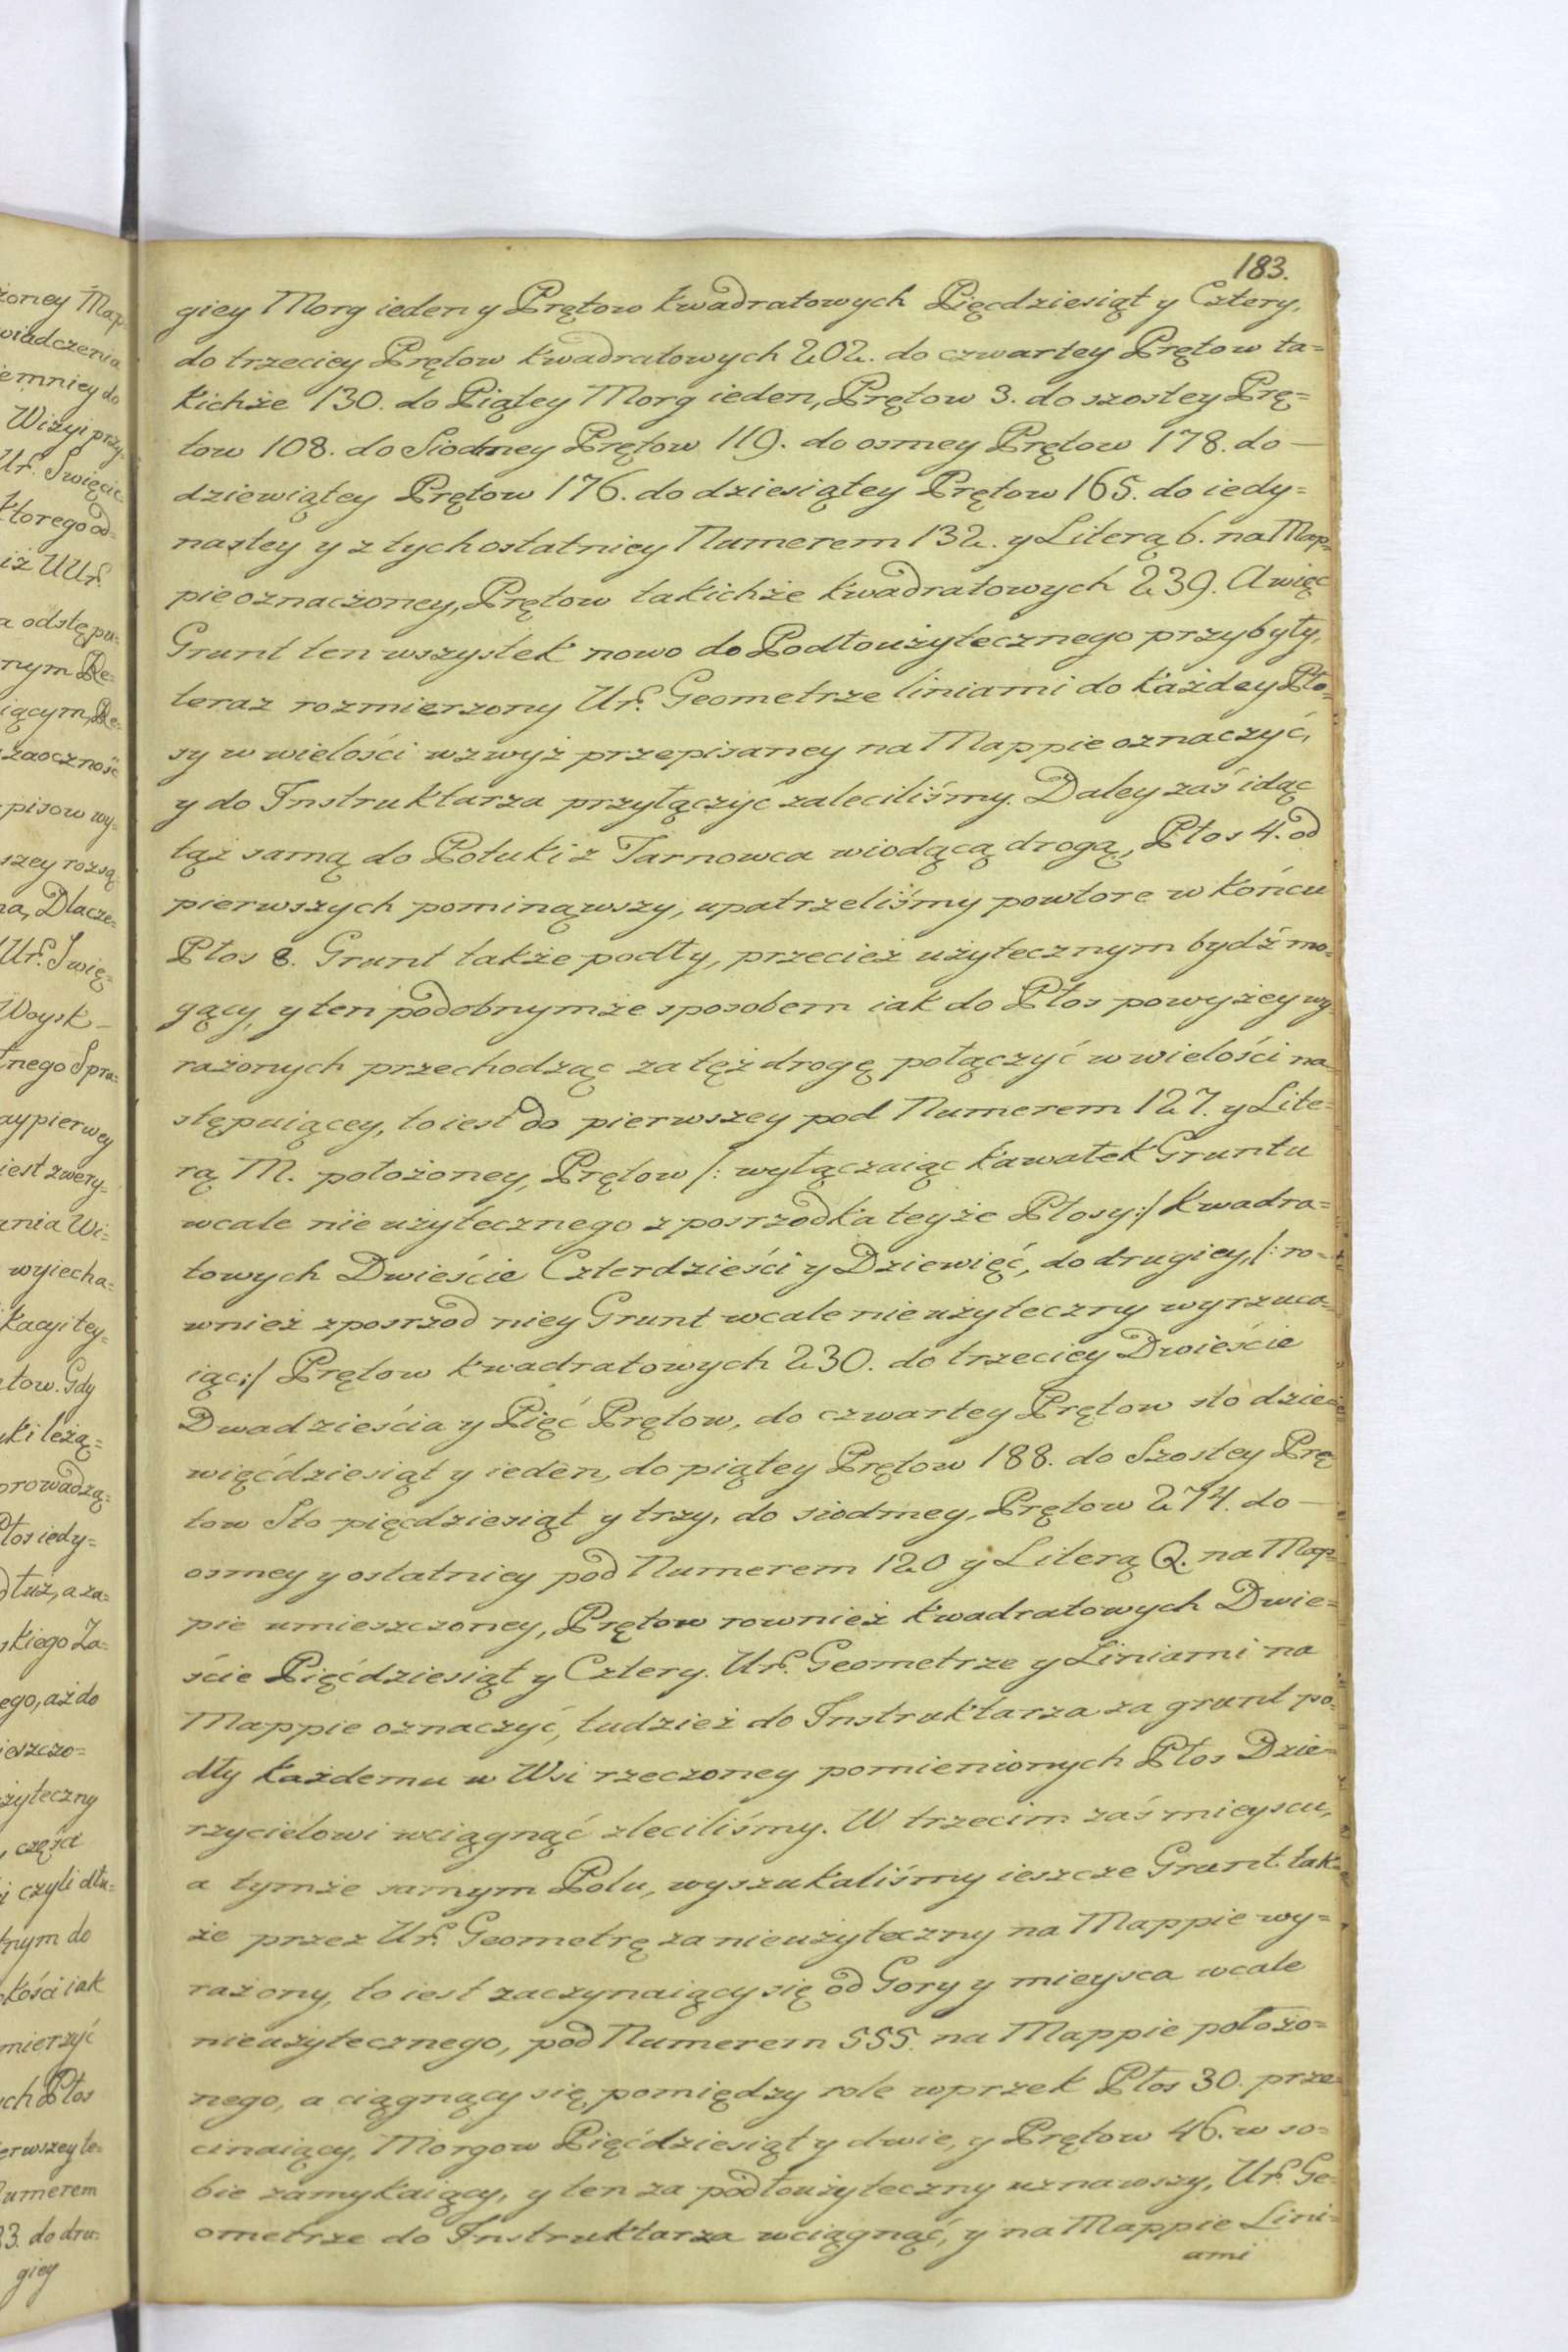 183.
giey Morg ieden y Prętow kwadratowych Pięcdziesiąt y Cztery,
do trzeciey Prętow kwadratowych 202. do czwartey Prętow ta=
kichże 130. do Piątey Morg ieden, Prętow 3. do szostey Prę=
tow 108. do Siodmey Prętow 119. do osmey Prętow 178. do —
dziewiątey Prętow 176. do dziesiątey Prętow 165. do iedy=
nastey y z tych ostatniey Numerem 132. y Literą b. na Map=
pie oznaczoney, Prętow takichże kwadratowych 239. A więc
Grunt ten wszystek nowo do Podłoużytecznego przybyły,
teraz rozmierzony Ur. Geometrze liniami do każdey Pło=
sy w wielości wzwyż przepisaney na Mappie oznaczyć,
y do Instruktarza przyłączyć zaleciliśmy. Daley zaś idąc
tąż samą do Połuki z Tarnowca wiodącą drogą, Płos 4. od
pierwszych pominąwszy, upatrzeliśmy powtore w końcu
Płos 8. Grunt także podły, przecież użytecznym bydź mo=
gący, y ten podobnymże sposobem iak do Płos powyżey wy=
rażonych przechodząc za tęż drogę połączyć w wielości na=
stępuiącey, to iest do pierwszey pod Numerem 127. y Lite=
rą M. położoney, Prętow /: wyłączaiąc kawałek Gruntu
wcale nie użytecznego z posrzodka teyże Płosy:/ kwadra=
towych Dwieście Czterdzieści y Dziewięć, do drugiey, /: ro=
wnież zposrzod niey Grunt wcale nie użyteczny wyrzuca=
iąc:/ Prętow kwadratowych 230. do trzeciey Dwieście
Dwadzieścia y Pięć Prętow, do czwartey Prętow sto dzie=
więćdziesiąt y ieden, do piątey Prętow 188. do Szostey Prę=
tow Sto pięcdziesiąt y trzy, do siodmey, Prętow 274. do —
osmey y ostatniey pod Numerem 120 y Literą Q. na Map=
pie umieszczoney, Prętow rownież kwadratowych Dwie=
ście Pięćdziesiąt y Cztery. Ur. Geometrze y Liniami na
Mappie oznaczyć, tudzież do Instruktarza za grunt po=
dły każdemu w Wsi rzeczoney pomienionych Płos Dzie=
rzycielowi wciągnąć zleciliśmy. W trzecim zaś mieyscu,
a tymże samym Polu, wyszukaliśmy ieszcze Grunt tak=
że przez Ur. Geometrę za nieużyteczny na Mappie wy=
rażony, to iest zaczynaiący się od Gory y mieysca wcale
nieużytecznego, pod Numerem 555. na Mappie położo=
nego, a ciągnący się pomiędzy role wprzek Płos 30. prze=
cinaiący, Morgow Pięćdziesiąt y dwie, y Prętow 46. w so=
bie zamykaiący, y ten za podłoużyteczny uznawszy, Ur. Ge=
ometrze do Instruktarza wciągnąć, y na Mappie Lini=
ami
żoney Map=
wiadczenia
emniey do
Wizyi przy=
Ur. Swięcic
ktorego od=
iż UUr.
a odstępu=
nym De=
iącym, De=
zaoczność
pisow wy=
szey rozsą=
na, Dlacze=
Ur. Swię=
Woysk —
tnego Spra=
aypierwey
iest zwery=
ania Wi=
wyiecha=
kacyi tey=
etow. Gdy
uki leżą=
prowadzą=
Płos iedy=
dłuż, a za=
skiego Za=
ego, aż do
ieszczo=
żyteczny
, części
i czyli dłu=
tnym do
kości iak
mierzyć
ych Płos
erwszey te=
Numerem
3. do dru=
giey